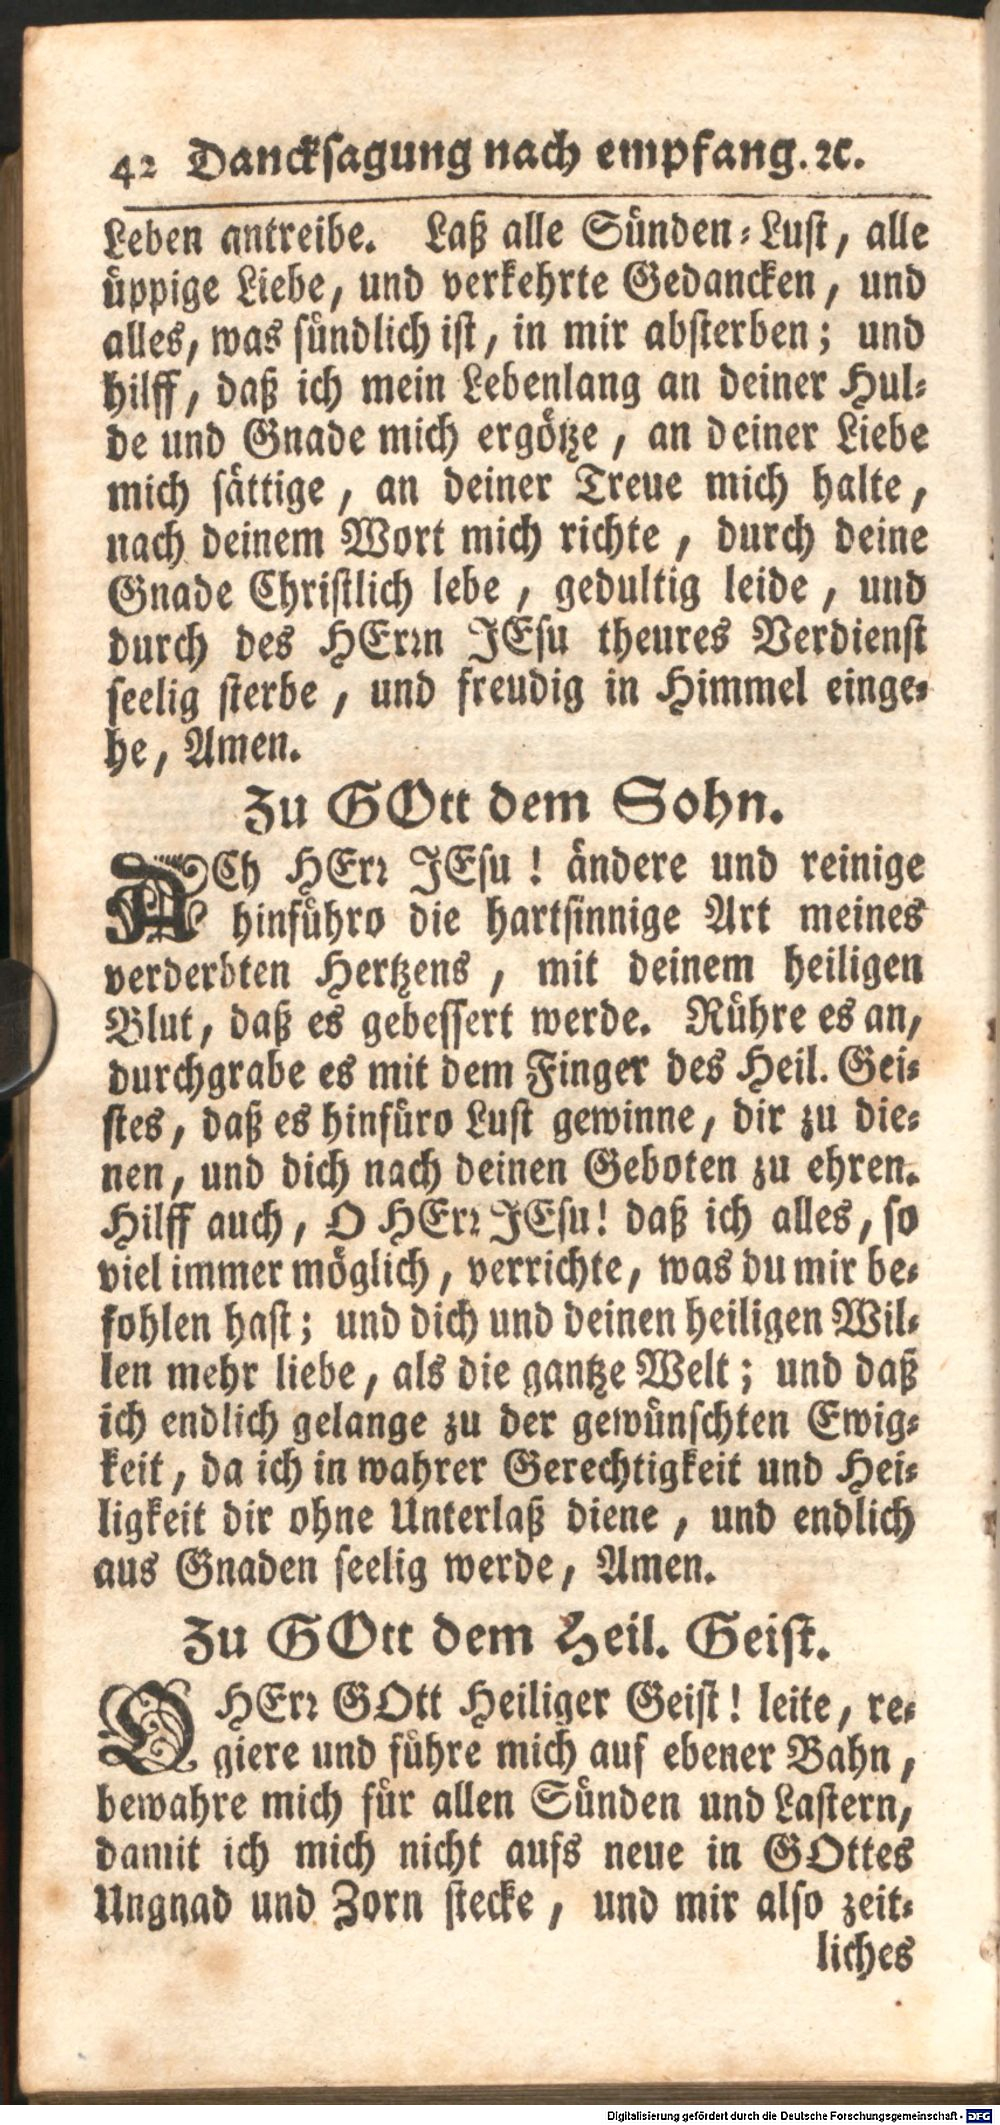 42 Dancksagung nach empfang. ꝛc.
Leben antreibe. Laß alle Sünden-Lust, alle
üppige Liebe, und verkehrte Gedancken, und
alles, was sündlich ist, in mir absterben; und
hilff, daß ich mein Lebenlang an deiner Hul-
de und Gnade mich ergötze, an deiner Liebe
mich sättige, an deiner Treue mich halte,
nach deinem Wort mich richte, durch deine
Gnade Christlich lebe, gedultig leide, und
durch des HErrn JEsu theures Verdienst
seelig sterbe, und freudig in Himmel einge-
he, Amen.
Zu GOtt dem Sohn.
ACh HErr JEsu! ändere und reinige
hinführo die hartsinnige Art meines
verderbten Hertzens, mit deinem heiligen
Blut, daß es gebessert werde. Rühre es an,
durchgrabe es mit dem Finger des Heil. Gei-
stes, daß es hinfüro Lust gewinne, dir zu die-
nen, und dich nach deinen Geboten zu ehren.
Hilff auch, O HErr JEsu! daß ich alles, so
viel immer möglich, verrichte, was du mir be-
fohlen hast; und dich und deinen heiligen Wil-
len mehr liebe, als die gantze Welt; und daß
ich endlich gelange zu der gewünschten Ewig-
keit, da ich in wahrer Gerechtigkeit und Hei-
ligkeit dir ohne Unterlaß diene, und endlich
aus Gnaden seelig werde, Amen.
Zu GOtt dem Heil. Geist.
O HErr GOtt Heiliger Geist! leite, re-
giere und führe mich auf ebener Bahn,
bewahre mich für allen Sünden und Lastern,
damit ich mich nicht aufs neue in GOttes
Ungnad und Zorn stecke, und mir also zeit-
liches
Digitalisierung gefördert durch die Deutsche Forschungsgemeinschaft - DFG